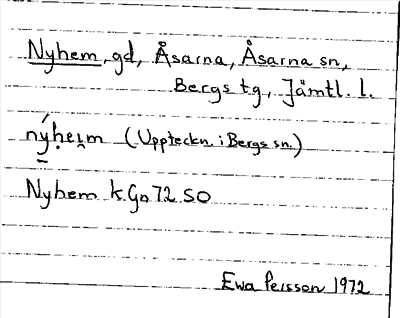 Nyhem, gd, Åsarna, Åsarna sn,
Bergs tg, Jämtl. l.
nýḥeı̣m (Uppteckn. i Bergs sn.)
Nyhem k.Gn 72 SO
Ewa Persson 1972